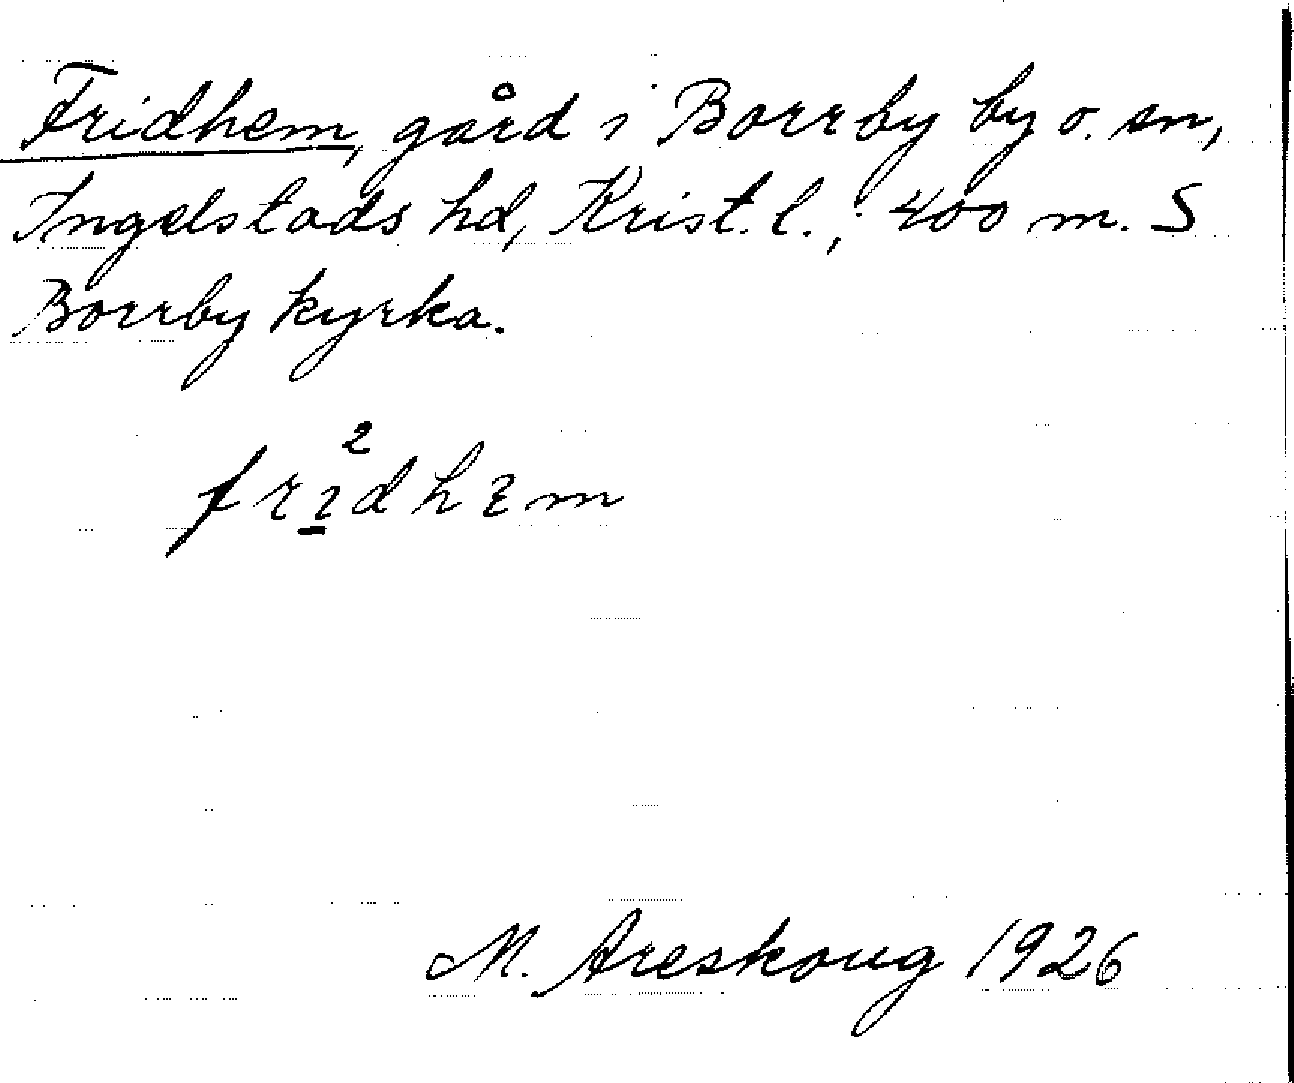 Fridhem, gård i Borrby by o. sn,
Ingelstads hd, Krist. l.; 400 m. S
Borrby kyrka.
2
frɪ̠dhɛm
M. Areskoug 1926